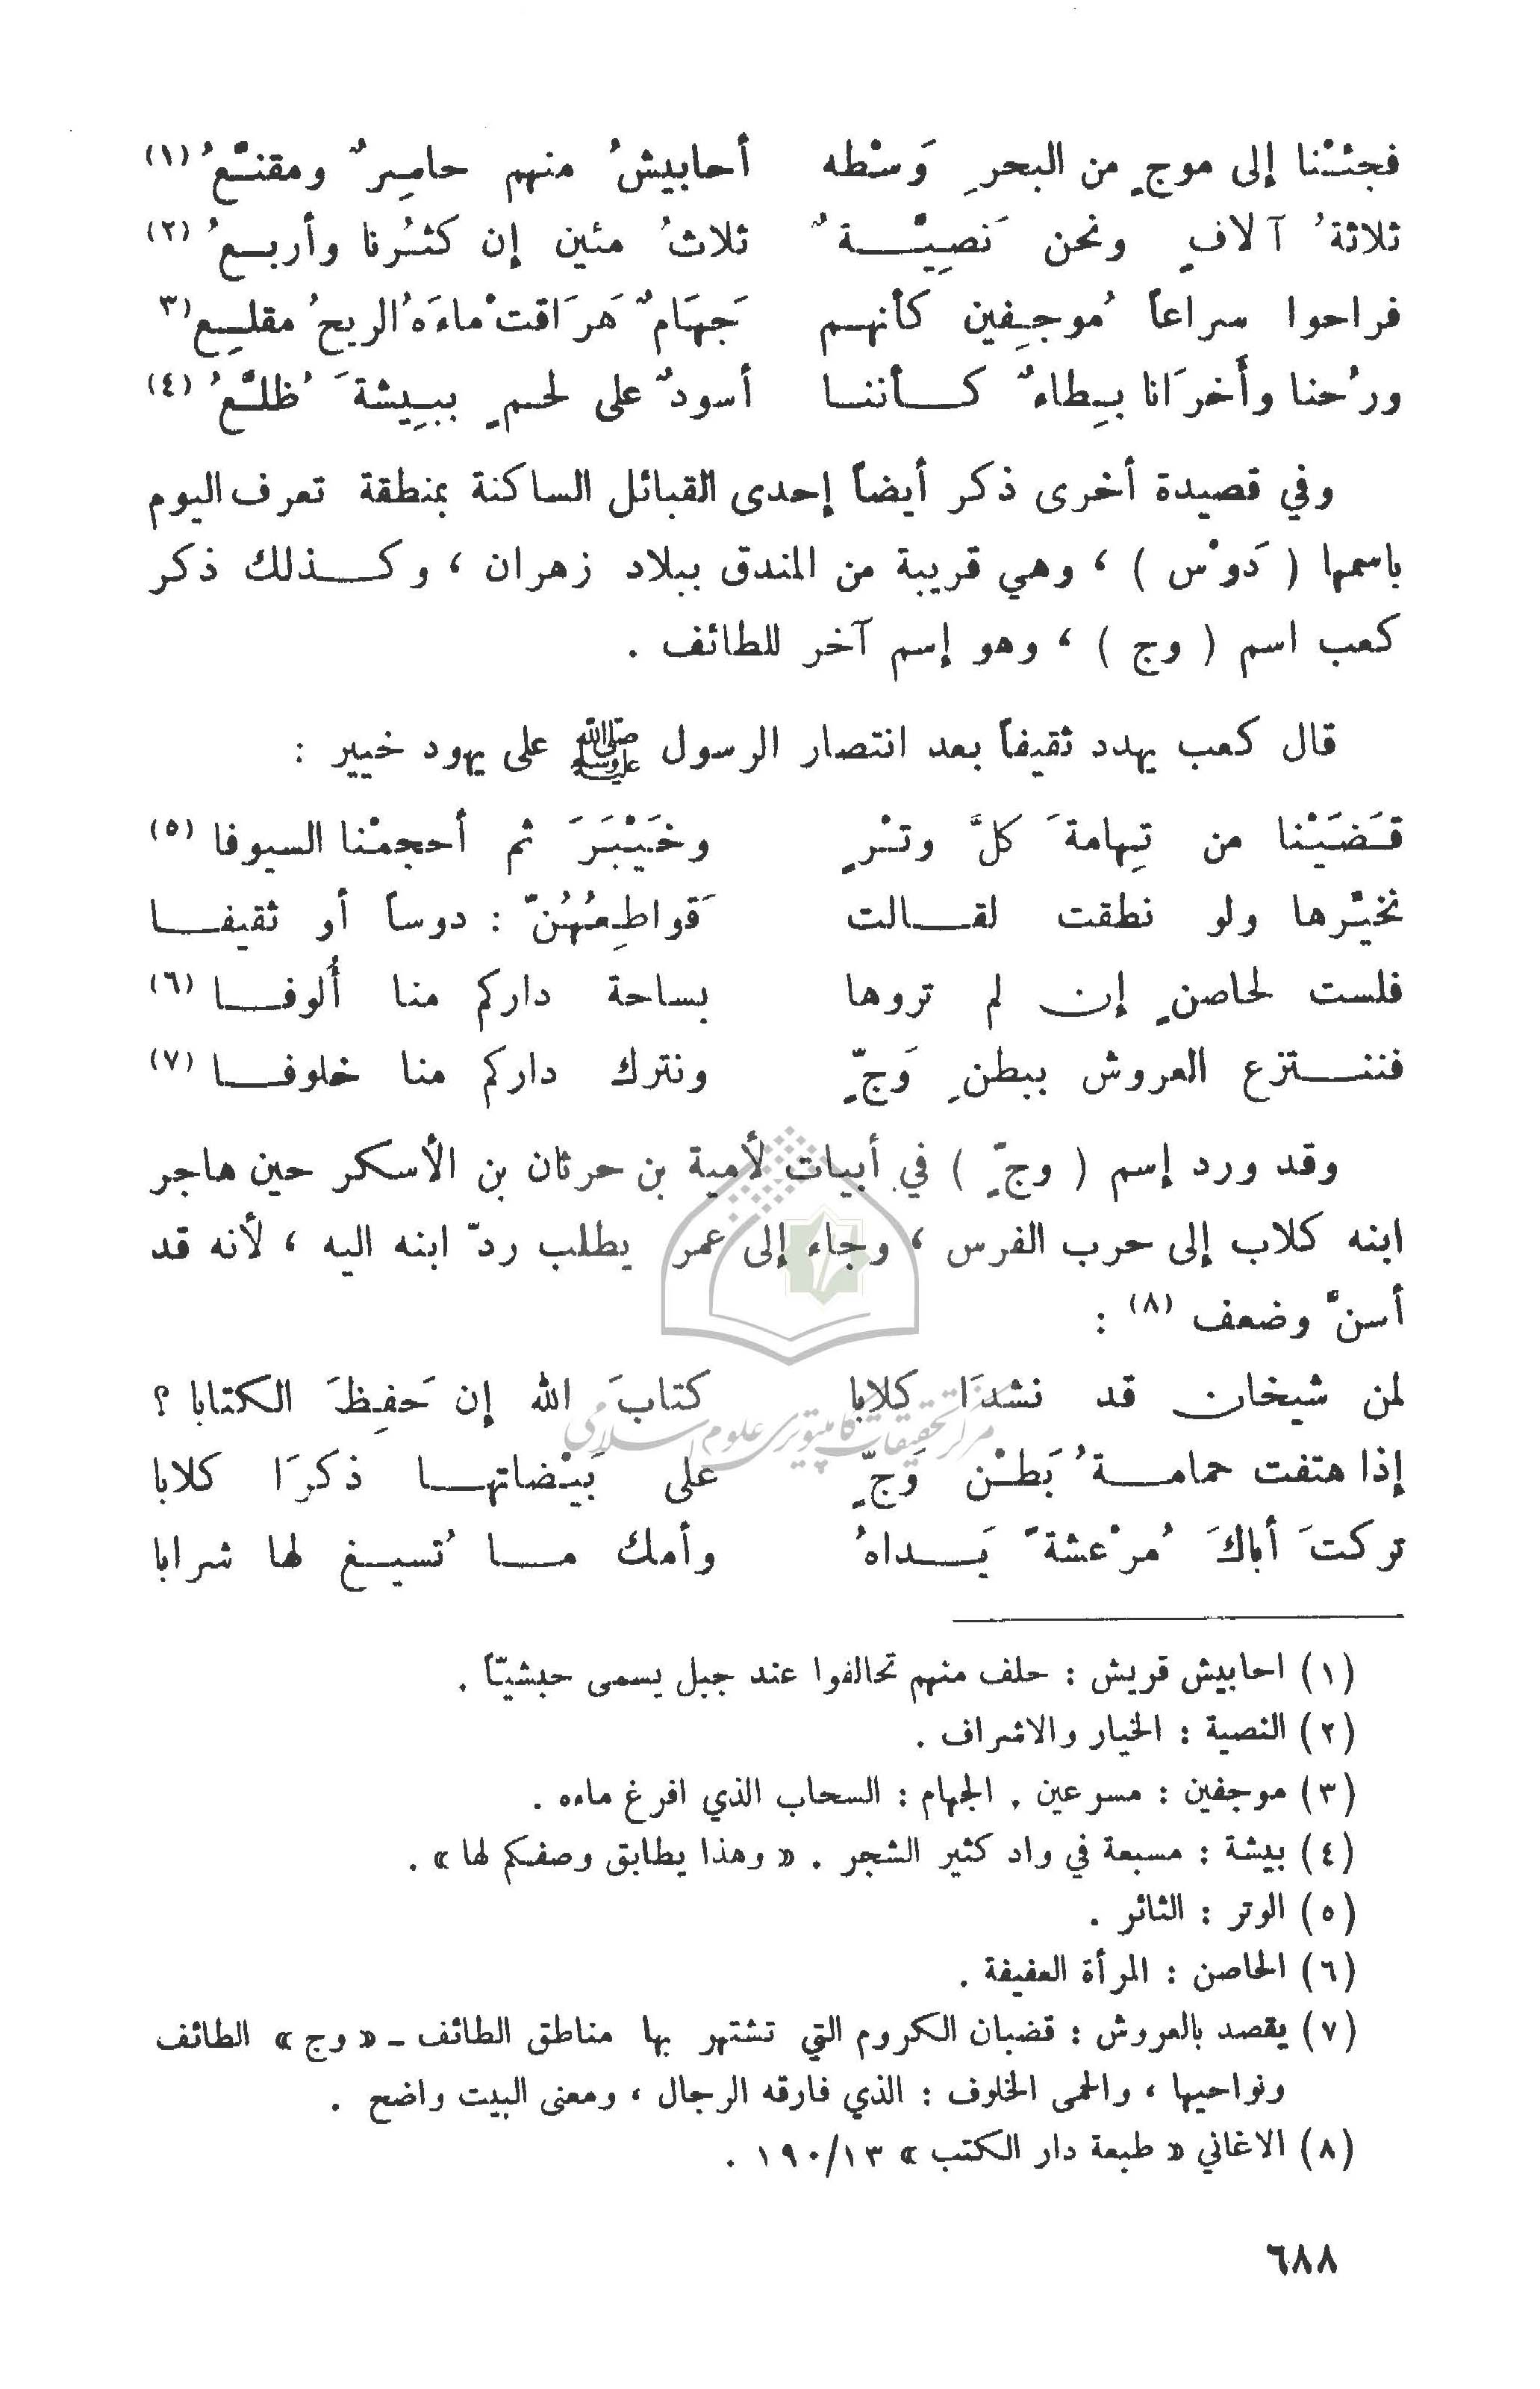 فجئنا إلى موجٍ من البحرِ وَسْطه أحابيشُ منهم حاسِرٌ ومقنَّعُ (١)
ثلاثةُ آلافٍ ونحن نَصِيَّةٌ ثلاثُ مئين إن كثُرنا وأربعُ (٢)
فراحوا سراعاً مُوجِفين كأنهم جَهَامٌ هَرَاقتْ ماءَهُ الريحُ مقلِع (٣
ورُحنا وأَخرَانا بِطاءٌ كأننا أسودٌ على لحمٍ ببِيشةَ ظُلَّعُ (٤)
وفي قصيدة أخرى ذكر أيضاً إحدى القبائل الساكنة بمنطقة تعرف اليوم
باسمها ( دَوْس ) ، وهي قريبة من المندق ببلاد زهران ، وكذلك ذكر
كعب اسم ( وج ) ، وهو إسم آخر للطائف .
قال كعب يهدد ثقيفاً بعد انتصار الرسول ﷺ على يهود خيبر :
قَضَيْنا من تِهامةَ كلَّ وتْرٍ وخَيْبَرَ ثم أحجمْنا السيوفا (٥)
نخيّرها ولو نطقت لقالت قَواطِعُهُنّ : دوساً أو ثقيفا
فلست لحاصنٍ إن لم تروها بساحة داركم منا أُلوفا (٦)
فننتزع العروش ببطنِ وَجٍّ ونترك داركم منا خلوفا (٧)
وقد ورد إسم ( وجٍّ ) في أبيات لأمية بن حرثان بن الأسكر حين هاجر
ابنه كلاب إلى حرب الفرس ، وجاء إلى عمر يطلب ردّ ابنه اليه ، لأنه قد
أسنّ وضعف (٨) :
لمن شيخان قد نشدَا كلابا كتابَ الله إن حَفِظَ الكتابا ؟
إذا هتفت حمامةُ بَطْن وَجٍّ على بَيْضاتها ذكرَا كلابا
تركتَ أباكَ مُرْعشةً يَداهُ وأمك ما تُسيغ لها شرابا
مركز تحقيقات كامپيوتري علوم إسلامي
(١) احابيش قريش : حلف منهم تحالفوا عند جبل يسمى حبشيّاً .
(٢) النصية : الخيار والاشراف .
(٣) موجفين : مسرعين . الجهام : السحاب الذي افرغ ماءه .
(٤) بيشة : مسبعة في واد كثير الشجر . « وهذا يطابق وصفكم لها » .
(٥) الوتر : الثائر .
(٦) الحاصن : المرأة العفيفة .
(٧) يقصد بالعروش : قضبان الكروم التي تشتهر بها مناطق الطائف ـ « وج » الطائف
ونواحيها ، والحمى الخلوف : الذي فارقه الرجال ، ومعنى البيت واضح .
(٨) الاغاني « طبعة دار الكتب » ١٩٠/١٣ .
٦٨٨